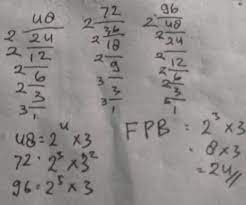 48
2 24
2 12
2 6
2 3
3 1
72
2 36
2 18
2 9
3 3
3 1
96
2 48
2 24
2 12
2 6
2 3
3 1
48 = 2⁴ × 3
72 = 2³ × 3²
96 = 2⁵ × 3
FPB = 2³ × 3
= 8 × 3
= 24 //